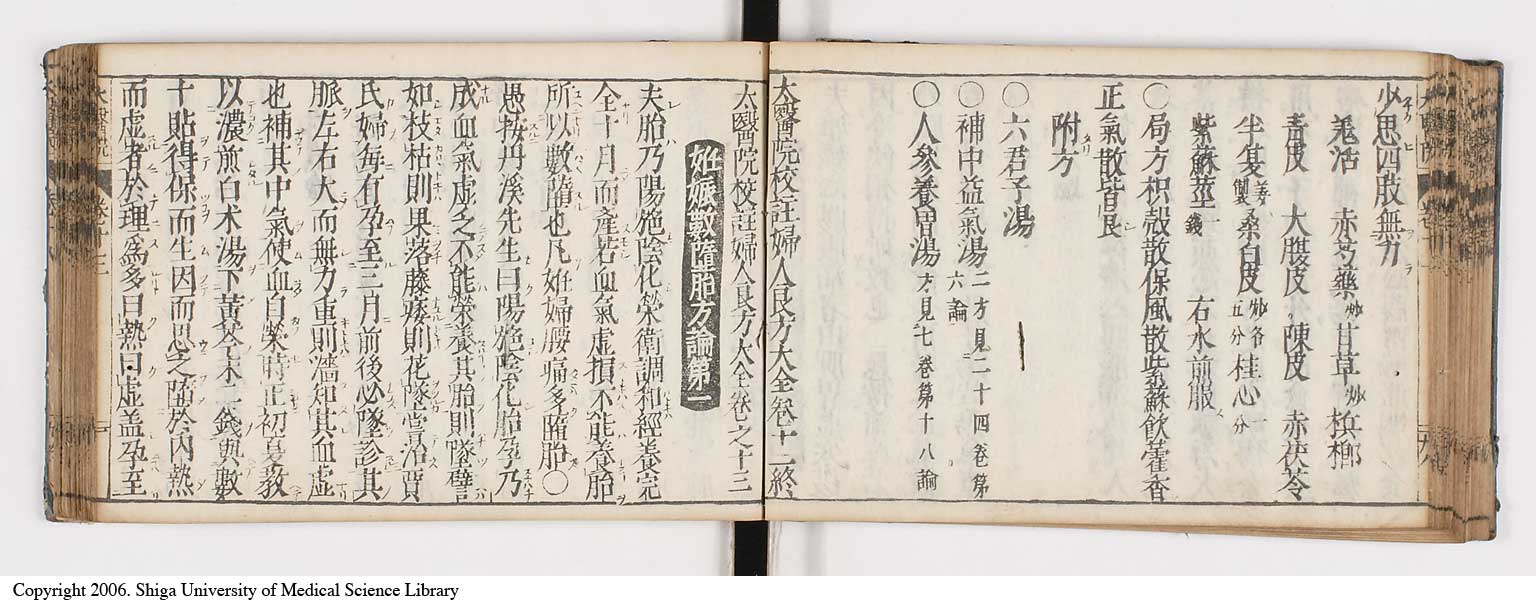 少思四肢無力
羌活 赤芍藥炒 甘草炒 梹榔
青皮 大腹皮 陳皮 赤茯苓
半夏姜製 桑白皮炒各五分 桂心一分
紫蘇莖一錢 右水煎服
○局方枳殻散保風散紫蘇飲藿香
正氣散皆良
附方
○六君子湯
○補中益氣湯二方見二十四卷第六論
○人參養胃湯方見七卷第十八論
太醫院校註婦人良方大全卷十二終
太醫院校註婦人良方大全卷之十三
妊娠數墮胎方論第一
夫胎乃陽施陰化榮衛調和經養完
全十月而產若血氣虛損不能養胎
所以數墮也凡妊婦腰痛多墮胎○
愚按丹溪先生曰陽施陰化胎孕乃
成血氣虛乏不能榮養其胎則墜譬
如枝枯則果落藤痿則花墜嘗治賈
氏婦每有孕至三月前後必墜診其
脉左右大而無力重則濇知其血虛
也補其中氣使血自榮時正初夏教
以濃煎白朮湯下黃芩末一錢與數
十貼得保而生因而思之墮於內熱
而虛者於理為多曰熱曰虛盖孕至
Copyright 2006. Shiga University of Medical Science Library